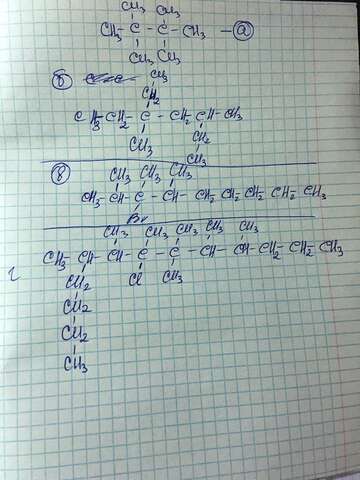 CH₃ CH₃
CH₃ - C - C - CH₃ - а
CH₃ CH₃
б CH₃
CH₂
CH₃ - CH₂ - C - CH₂ - CH - CH₃
CH₃ CH₂
CH₃
в CH₃ CH₃ CH₃
CH₃ - CH - C - CH - CH₂ - CH₂ - CH₂ - CH₂ - CH₃
Br
CH₃ CH₃ CH₃ CH₃ CH₃
г CH₃ - CH - CH - C - C - CH - CH - CH₂ - CH₂ - CH₃
CH₂ Cl CH₃
CH₂
CH₂
CH₃